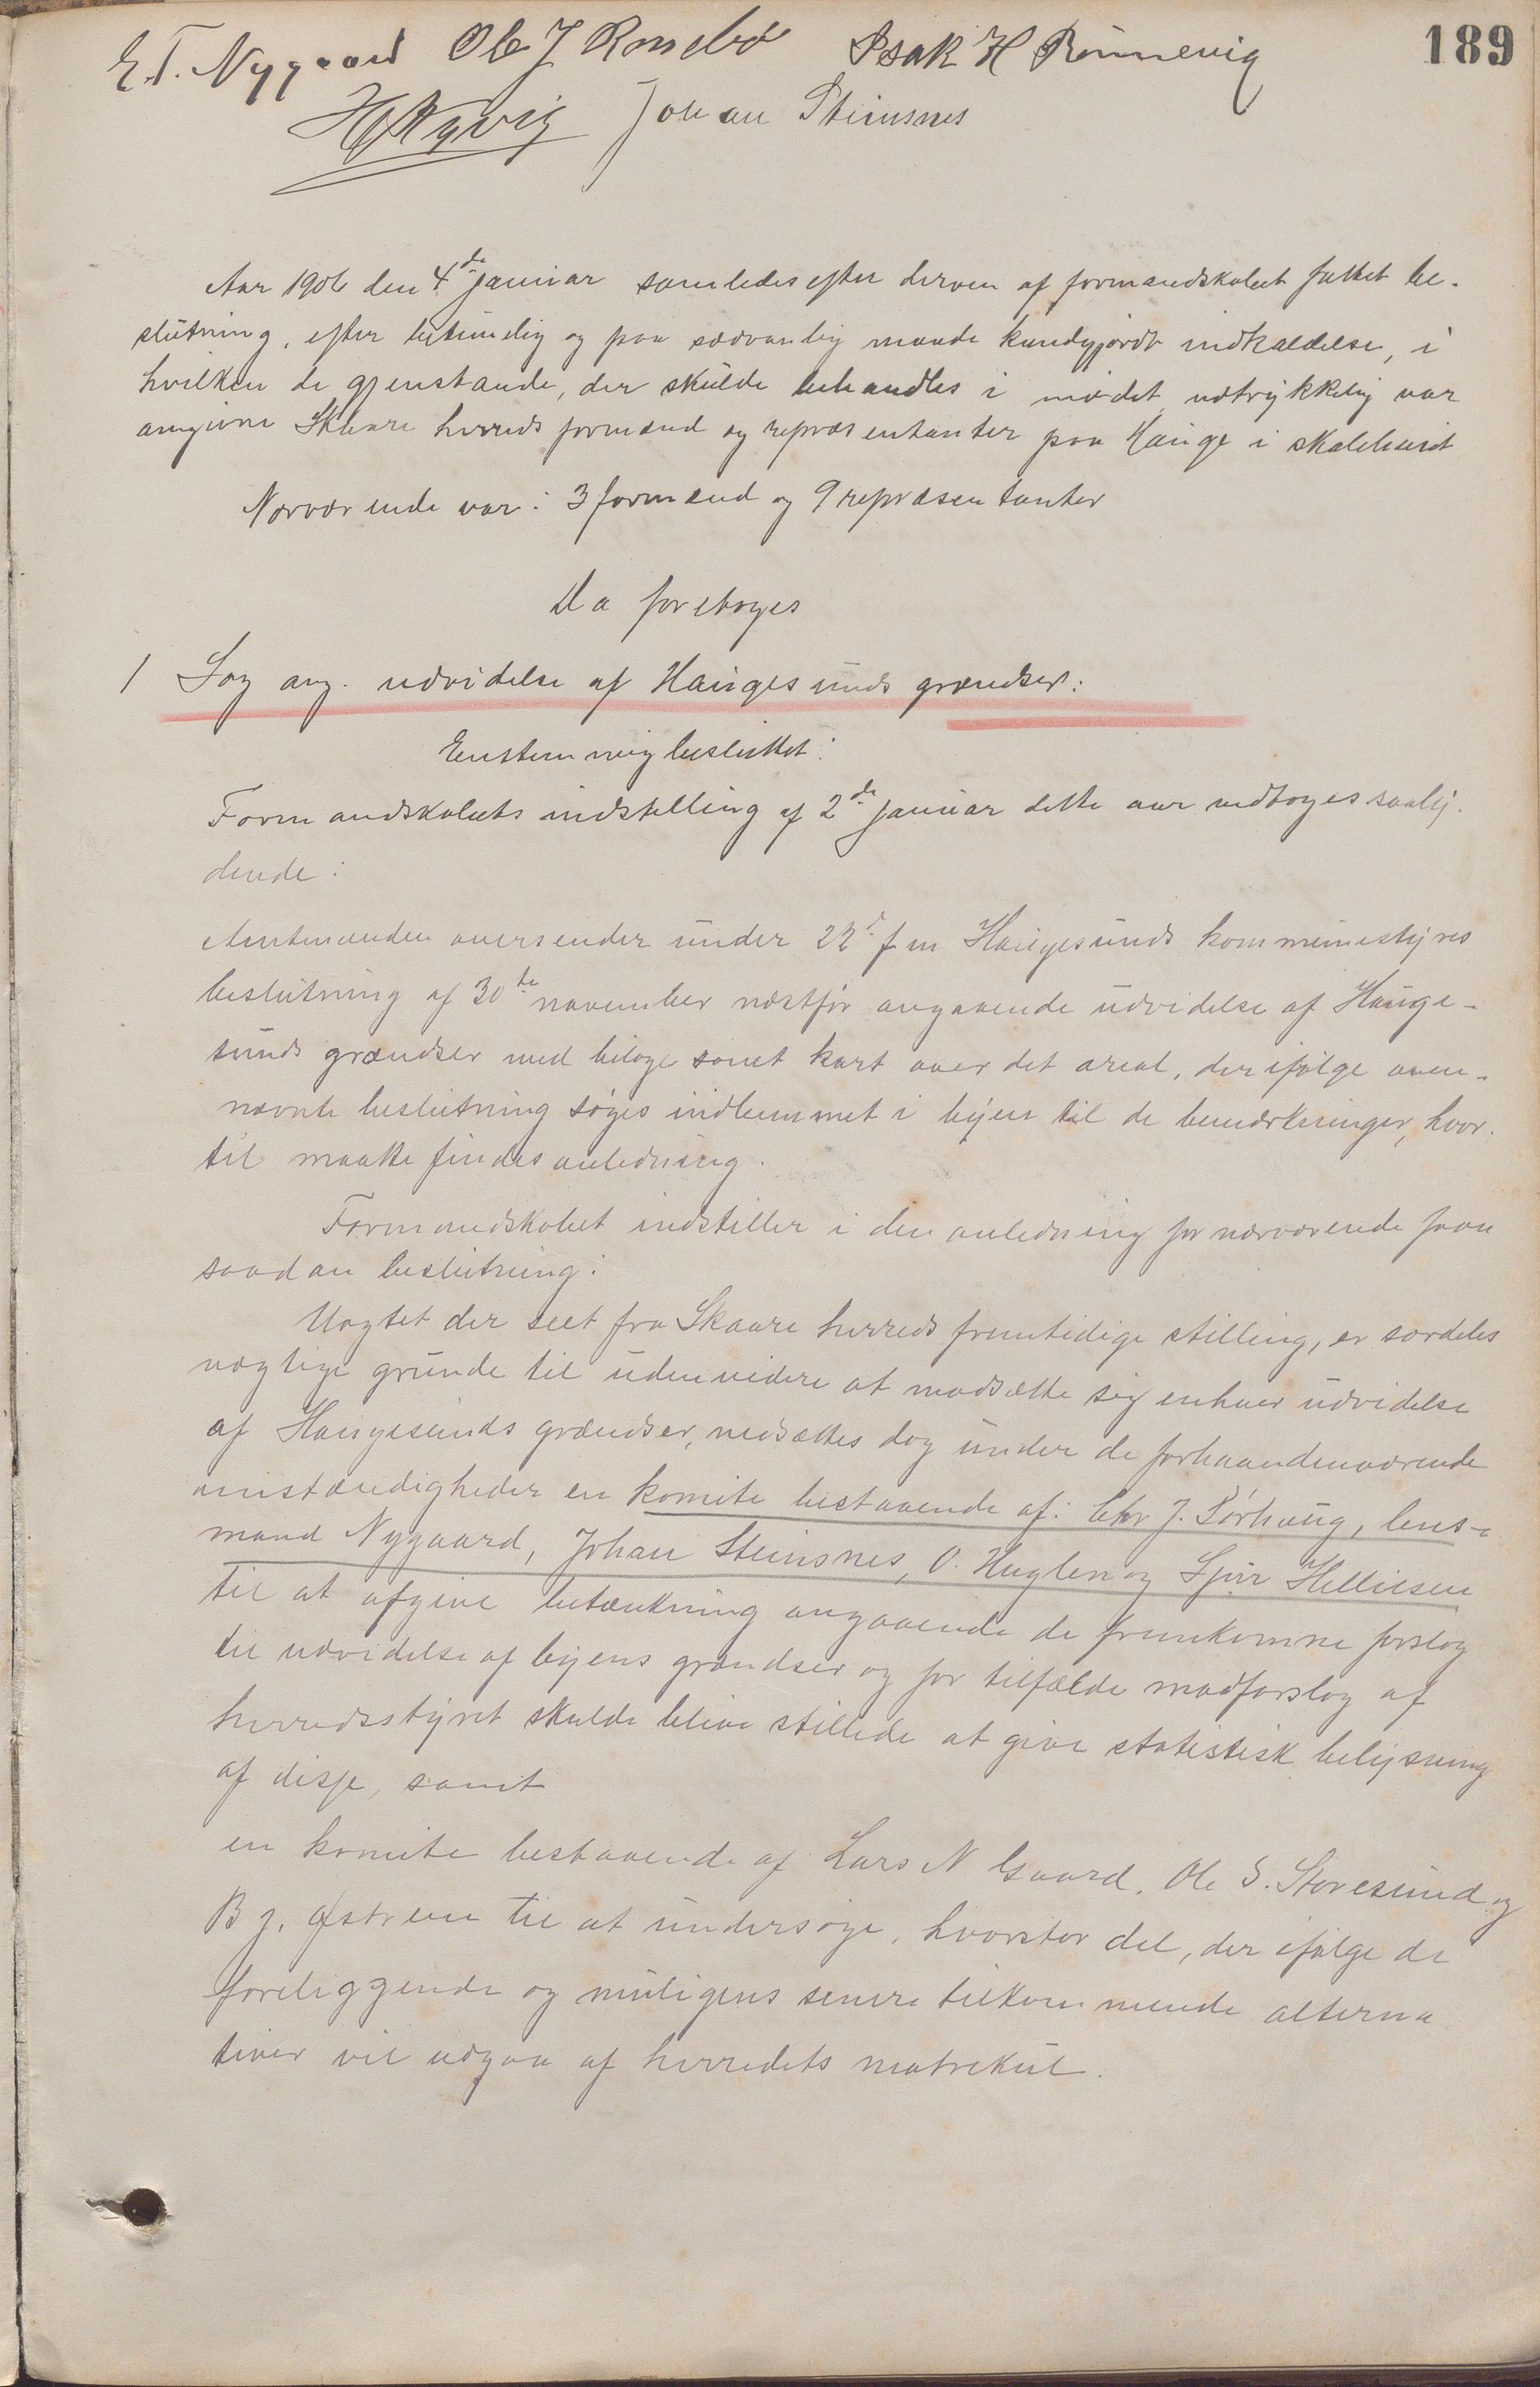 189
E. T. Nygaard Ole J Rossebø Isak H Rønnevig
Johan Steinsnes
Aar 1906 den 4de januar samledes efter derom af formandskabet fattet be-
slutning, efter betimelig og paa sædvanlig maade kundgjordt indkaldelse, i
hvilken de gjenstande, der skulde behandles i mødet udtrykkelig var
angivne Skaare herreds formænd og repræsentanter paa Hauge i skolehuset
Nærværende var: 3 formænd og 9 repræsentanter
Da foretoges
1 Sag ang. udvidelse af Haugesunds grændser:
Enstemmig besluttet:
Formandskabets indstilling af 2de januar dette aar vedtoges saaly-
dende:
Amtmanden oversender under 22d f m Haugesunds kommunestyres
beslutning af 30te november næstfør angaaende udvidelse af Hauge-
sunds grændser med bilage samt kart over det areal, der ifølge oven-
nævnte beslutning søges indlemmet i byen til de bemærkninger, hvor-
til maatte findes anledning.
Formandskabet indstiller i den anledning for nærværende paa
saadan beslutning:
Uagtet der seet fra Skaare herreds fremtidige stilling, er særdeles
vægtige grunde til uden videre at modsætte sig enhver udvidelse
af Haugesunds grændser, nedsættes dog under de forhaandenværende
omstændigheder en komite bestaaende af: Chr J. Sørhaug, lens-
mand Nygaard, Johan Steinsnes, O. Huglen og Sjur Helliesen
til at afgive betænkning angaaende de fremkomne forslag
til udvidelse af byens grændser og for tilfælde modforslag af
herredsstyret skulde blive stillede at give statistisk belysning
af disse, samt
en komite bestaaende af Lars N Gaard, Ole S. Storesund og
B J. Østrem til at undersøge, hvorstor del, der ifølge de
foreliggende og muligens senere tilkommende alterna
tiver vil udgaa af herredets matrikul.